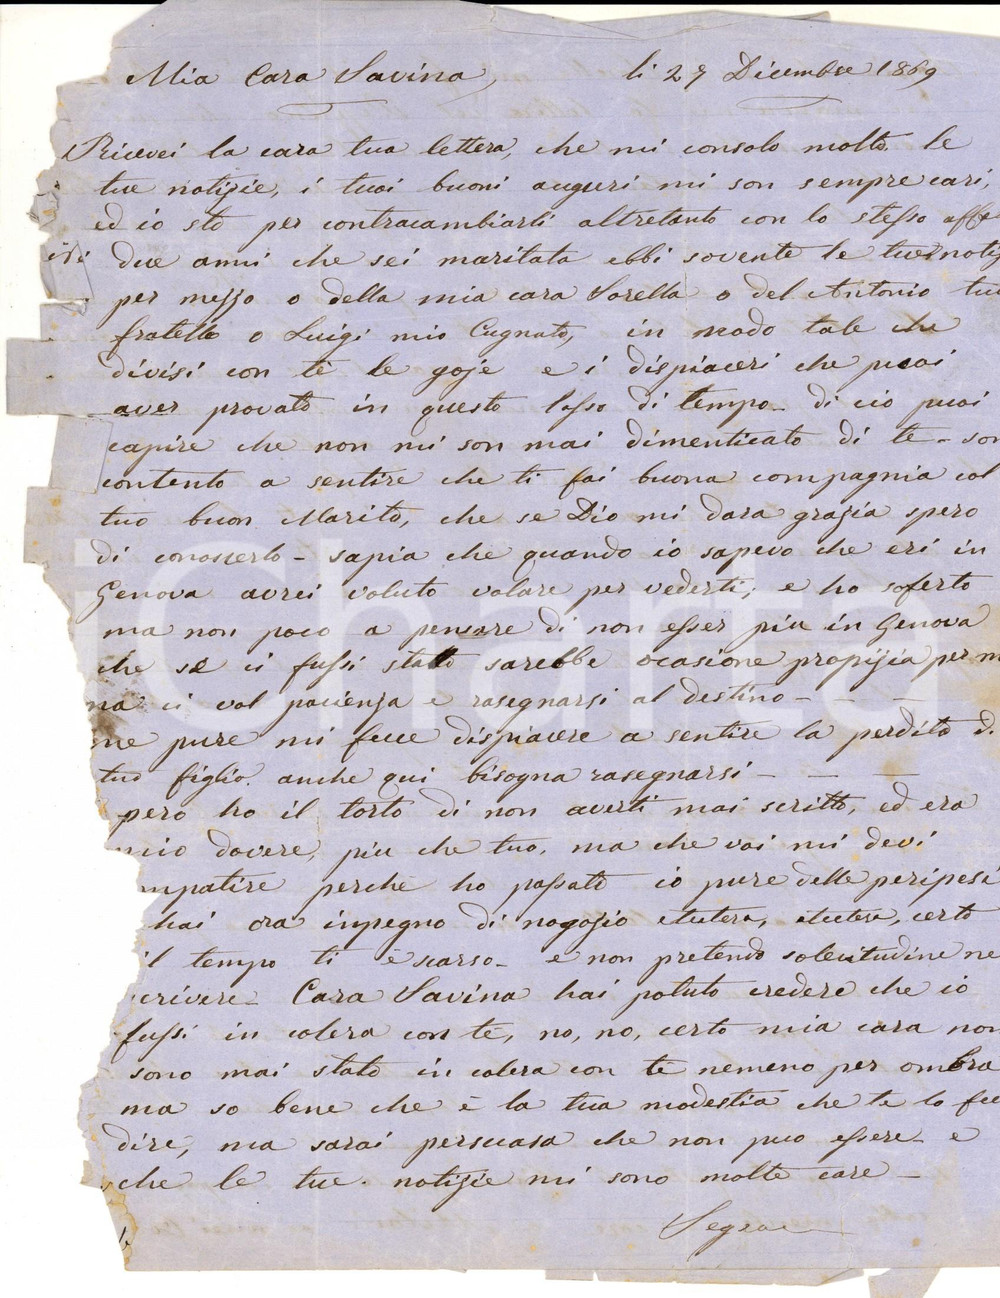 Mia Cara Savina, li 29 Dicembre 1869
Ricevei la cara tua lettera, che mi consolo molto. le
tue notizie, i tuoi buoni auguri mi son sempre cari,
ed io sto per contracambiarti altretanto con lo stesso affe
due anni che sei maritata ebbi sovente le tue notiz
per mezzo o della mia cara Sorella o del Antonio tuo
fratello o Luigi mio Cugnato, in modo tale che
divisi con te le goje e i dispiaceri che puoi
aver provato in questo lasso di tempo - di cio puoi
capire che non mi son mai dimenticato di te - son
contento a sentire che ti fai buona compagnia col
tuo buon Marito, che se Dio mi dara grazia spero
di conoscerlo - sapia che quando io sapevo che eri in
Genova avrei voluto volare per vederti, e ho soferto
ma non poco a pensare di non esser piu in Genova
che se ci fussi stato sarebbe ocasione propizia per m
ma ci vol pacienza e rasegnarsi al destino - - -
me pure mi fece dispiacere a sentire la perdita d
tuo figlio. anche qui bisogna rasegnarsi - - -
pero ho il torto di non averti mai scritto, ed era
mio dovere, piu che tuo, ma che voi mi devi
mpatire perche ho passato io pure delle peripesi
hai ora inpegno di nogozio etcetera, etcetera, certo
il tempo ti è scarso - e non pretendo solecitudine ne
crivere - Cara Savina hai potuto credere che io
fussi in colera con te, no, no, certo mia cara non
sono mai stato in colera con te nemeno per ombra
ma so bene che è la tua modestia che te lo fec
dire, ma sarai persuasa che non puo essere - e
che le tue notizie mi sono molte care -
Segua
iCharta